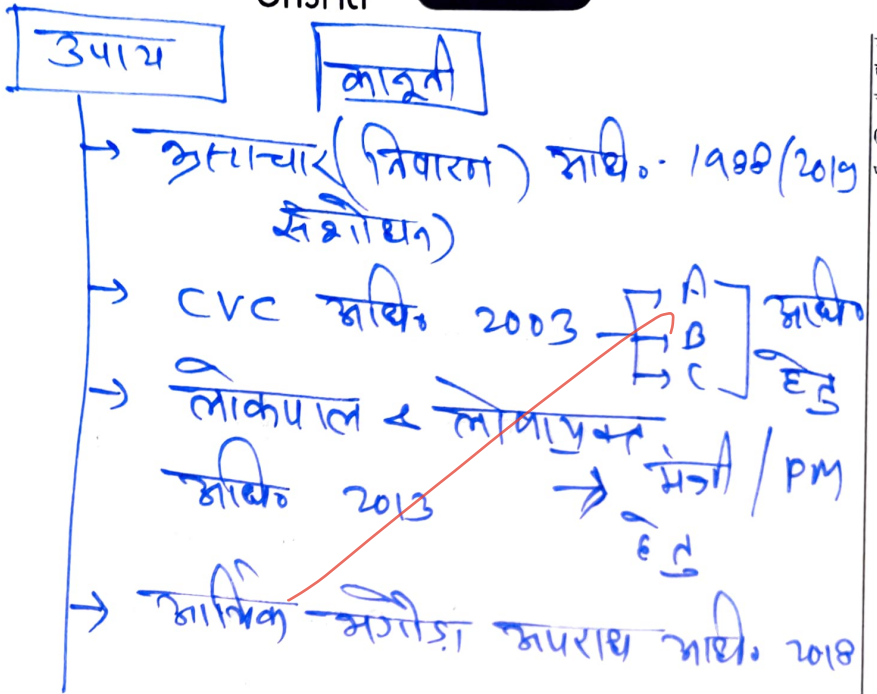 उपाय
कानूनी
भ्रष्टाचार (निवारण) अधि०- 1988 (2019
संशोधन)
CVC अधि० 2003 → A
→ B
→ C
अधि०
हेतु
लोकपाल & लोकायुक्त
अधि० 2013 → मंत्री / PM
हेतु
→ आर्थिक भगौड़ा अपराध अधि. 2018